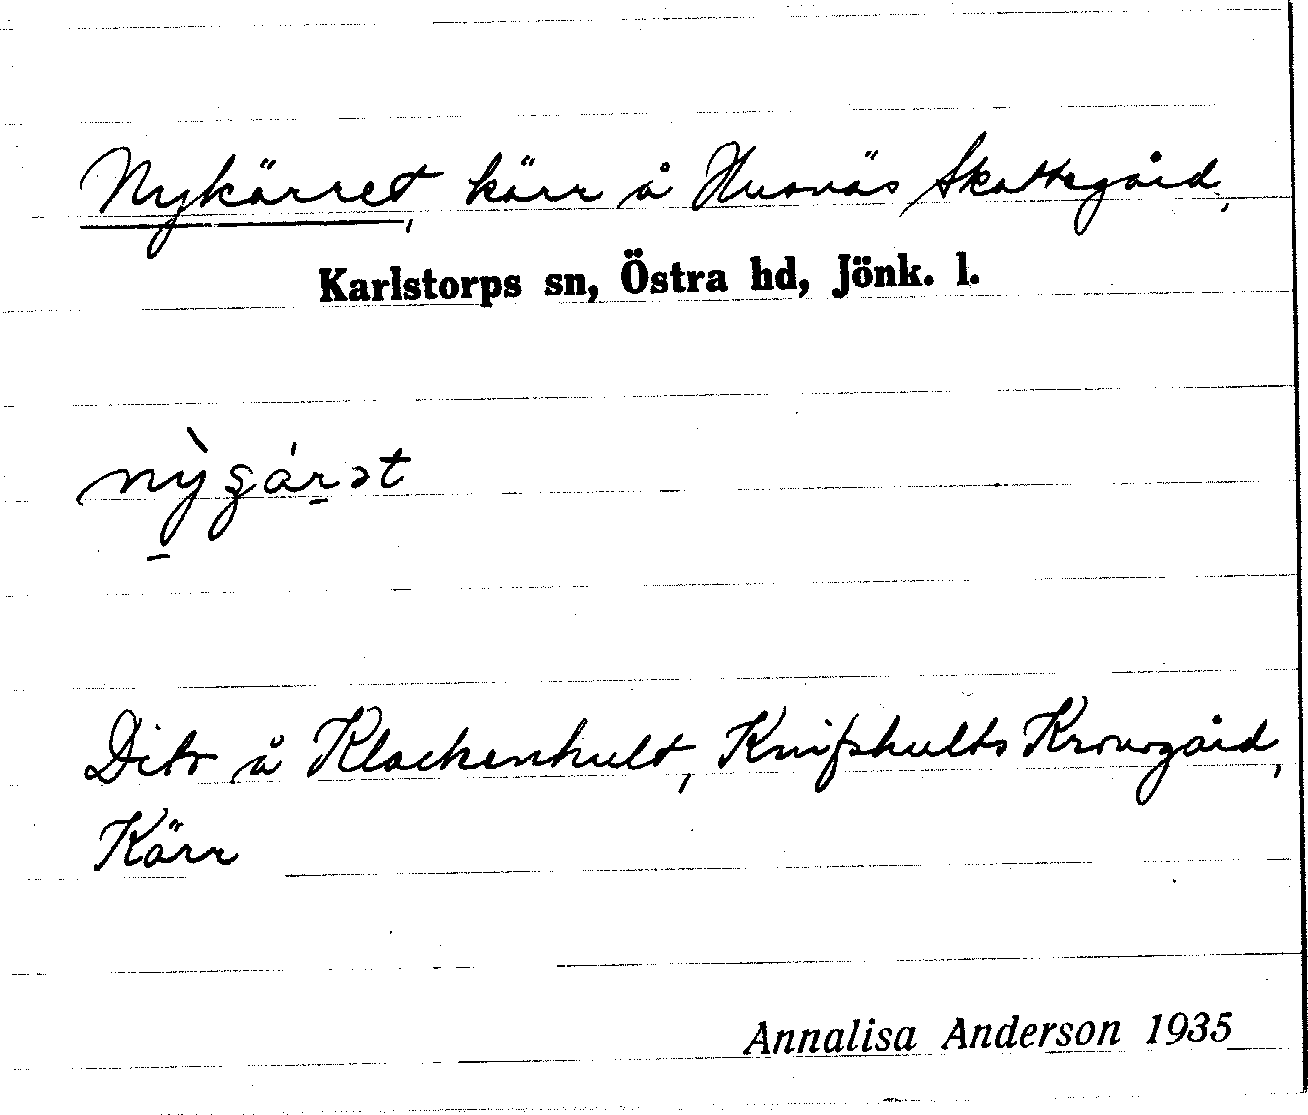 Nykärret, kärr å Husnäs Skattegård,
Karlstorps sn, Östra hd, Jönk. l.
Dito å Klackenhult, Knifshults Kronogård,
Kärr
Annalisa Anderson 1935